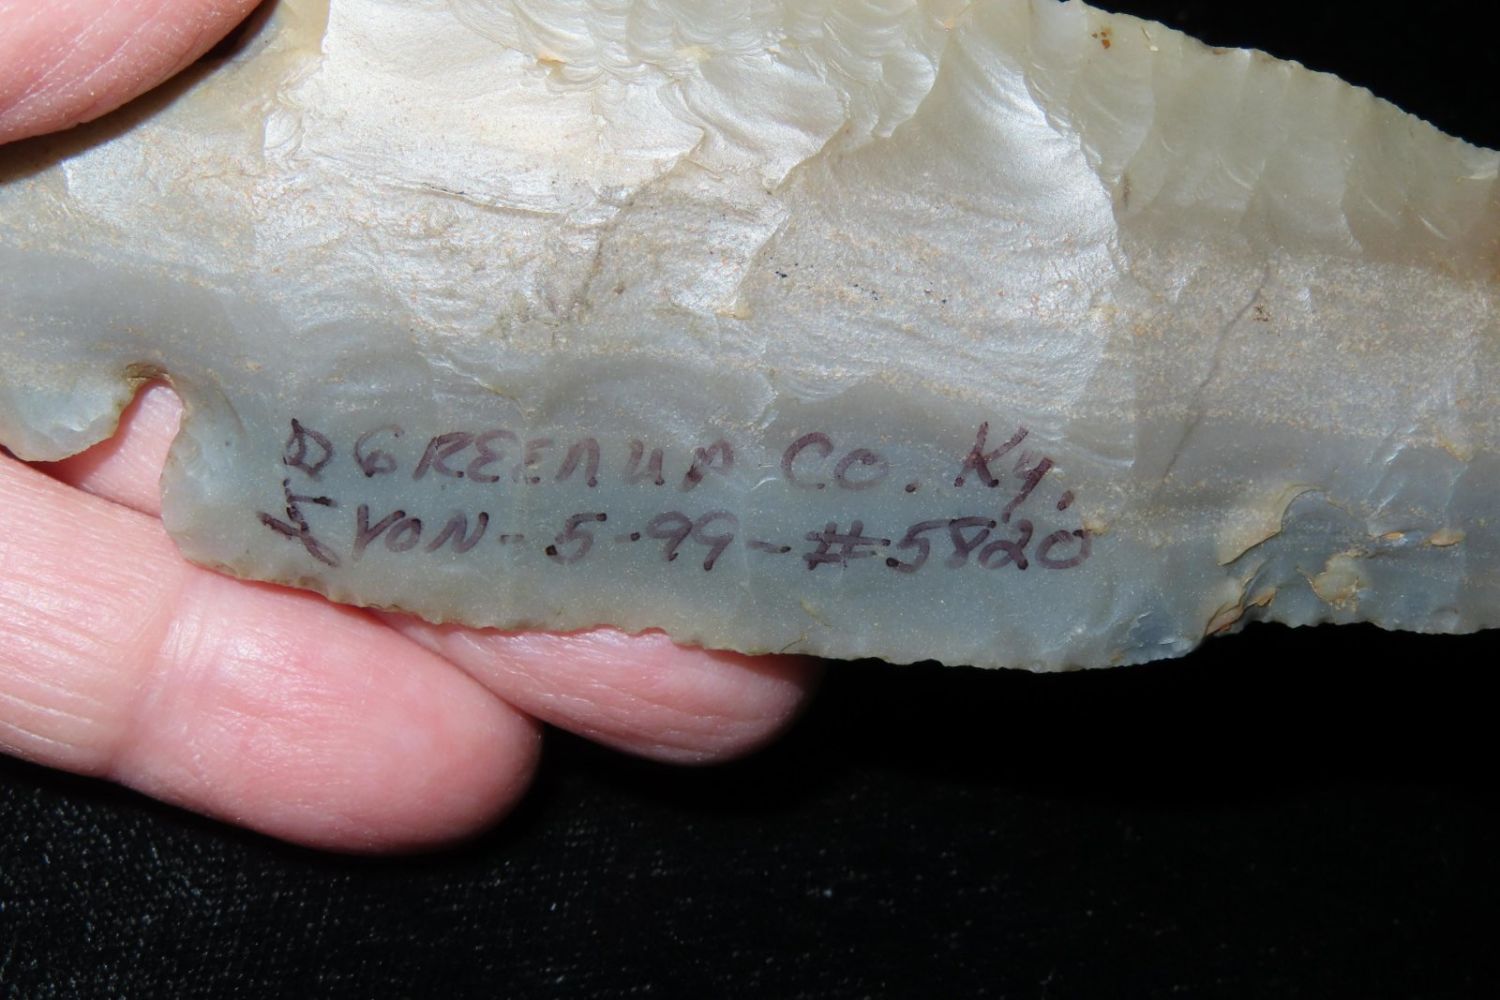 GREENUP CO. Ky.
VON - 5-99 - #5820